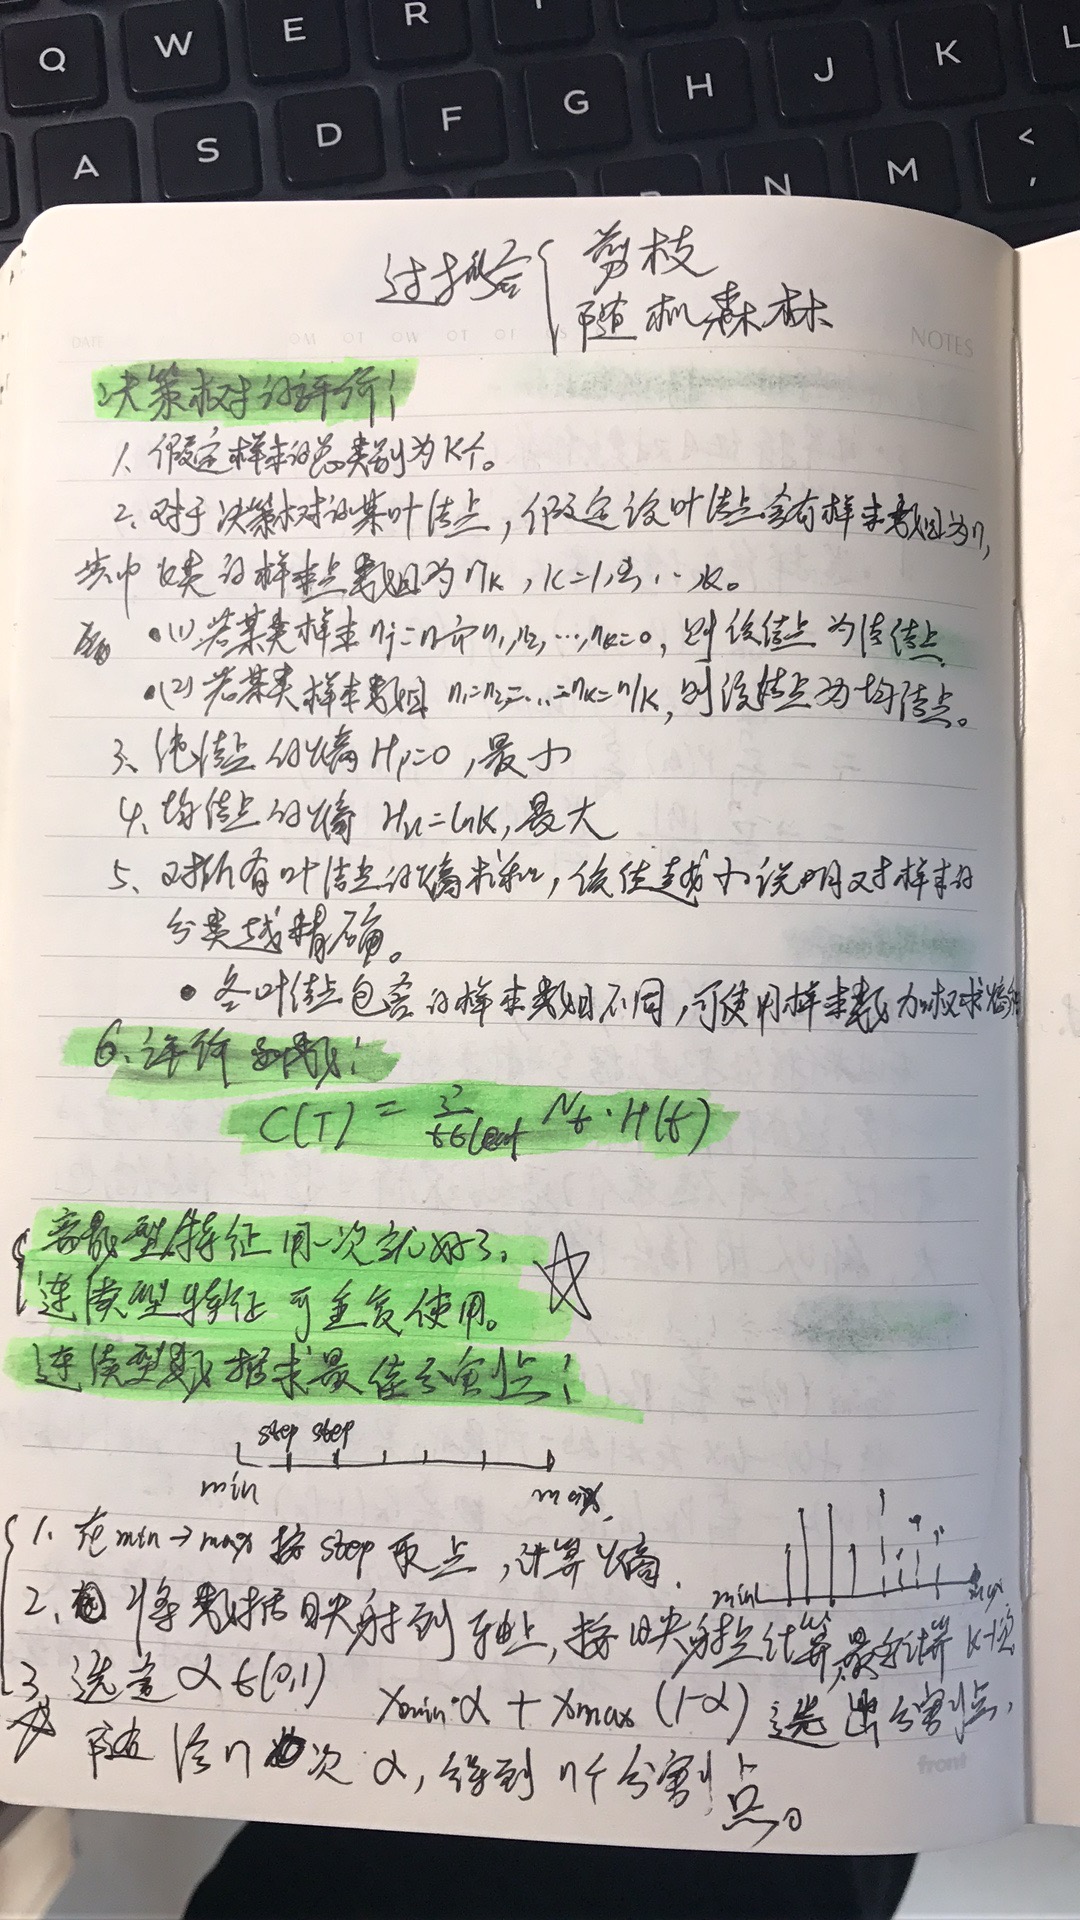 Q W E R T
A S D F G H J K L
N M < ,
过拟合 { 剪枝
随机森林
DATE
NOTES
决策树的评价:
1、假定样本的总类别为K个。
2、对于决策树的某叶结点,假定该叶结点含有样本数目为n,
其中k类的样本点数目为nk,k=1,2,…,K。
•(1)若某类样本nj=n而n1,n2,…,nk=0,则该结点为纯结点
•(2)若某类样本数目 n1=n2=…=nk=n/K,则该结点为均结点。
3、纯结点的熵Hp=0,最小
4、均结点的熵 Hu=lnK,最大
5、对所有叶结点的熵求和,该值越小说明对样本的
分类越精确。
• 各叶结点包含的样本数目不同,可使用样本数加权求熵和
6、评价函数:
C(T) = Σ t∈leaf Nt·H(t)
离散型特征用一次就好了、
连续型特征可重复使用。
连续型数据求最佳分割点:
step step
min max
1、在min→max按step取点,计算熵.
min max
2、将数据映射到轴上,按映射点计算,最多计算K-1次
3、选定α∈(0,1) xmin·α + xmax(1-α) 选出分割点,
随机n次α,得到n个分割点。
front